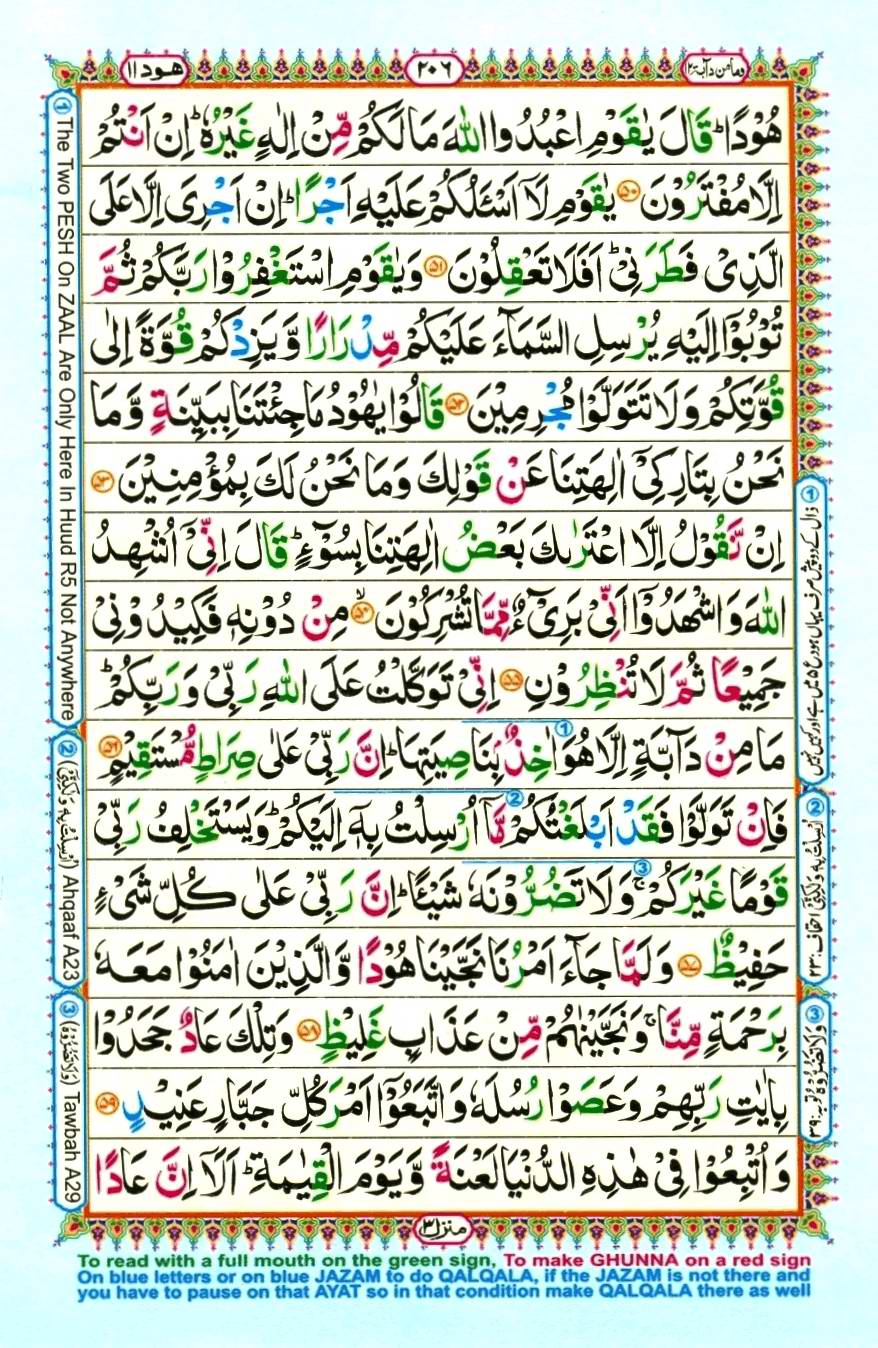 هود ۱۱
۲۰۶
ومامن دآبة ۱۲
هُوۡدًا ؕ قَالَ يٰقَوۡمِ اعۡبُدُوا اللّٰهَ مَا لَـكُمۡ مِّنۡ اِلٰهٍ غَيۡرُهٗ ؕ اِنۡ اَنۡتُمۡ
اِلَّا مُفۡتَرُوۡنَ ﴿۵۰﴾ يٰقَوۡمِ لَاۤ اَسۡـَٔـلُكُمۡ عَلَيۡهِ اَجۡرًا ؕ اِنۡ اَجۡرِىَ اِلَّا عَلَى
الَّذِىۡ فَطَرَنِىۡ ؕ اَفَلَا تَعۡقِلُوۡنَ ﴿۵۱﴾ وَيٰقَوۡمِ اسۡتَغۡفِرُوۡا رَبَّكُمۡ ثُمَّ
تُوۡبُوۡۤا اِلَيۡهِ يُرۡسِلِ السَّمَآءَ عَلَيۡكُمۡ مِّدۡرَارًا وَّيَزِدۡكُمۡ قُوَّةً اِلٰى
قُوَّتِكُمۡ وَلَا تَتَوَلَّوۡا مُجۡرِمِيۡنَ ﴿۵۲﴾ قَالُوۡا يٰهُوۡدُ مَا جِئۡتَنَا بِبَيِّنَةٍ وَّمَا
نَحۡنُ بِتَارِكِىۡۤ اٰلِهَتِنَا عَنۡ قَوۡلِكَ وَمَا نَحۡنُ لَكَ بِمُؤۡمِنِيۡنَ ﴿۵۳﴾
اِنۡ نَّقُوۡلُ اِلَّا اعۡتَرٰٮكَ بَعۡضُ اٰلِهَتِنَا بِسُوۡٓءٍ ؕ قَالَ اِنِّىۡۤ اُشۡهِدُ
اللّٰهَ وَاشۡهَدُوۡۤا اَنِّىۡ بَرِىۡٓءٌ مِّمَّا تُشۡرِكُوۡنَ ۙ‏﴿۵۴﴾ مِنۡ دُوۡنِهٖ فَكِيۡدُوۡنِىۡ
جَمِيۡعًا ثُمَّ لَا تُنۡظِرُوۡنِ ﴿۵۵﴾ اِنِّىۡ تَوَكَّلۡتُ عَلَى اللّٰهِ رَبِّىۡ وَرَبِّكُمۡ ؕ
مَا مِنۡ دَآبَّةٍ اِلَّا هُوَ اٰخِذٌۢ بِنَاصِيَتِهَا ؕ اِنَّ رَبِّىۡ عَلٰى صِرَاطٍ مُّسۡتَقِيۡمٍ ﴿۵۶﴾
فَاِنۡ تَوَلَّوۡا فَقَدۡ اَبۡلَغۡتُكُمۡ مَّاۤ اُرۡسِلۡتُ بِهٖۤ اِلَيۡكُمۡ ؕ وَيَسۡتَخۡلِفُ رَبِّىۡ
قَوۡمًا غَيۡرَكُمۡ ۚ وَلَا تَضُرُّوۡنَهٗ شَيۡـًٔا ؕ اِنَّ رَبِّىۡ عَلٰى كُلِّ شَىۡءٍ
حَفِيۡظٌ ﴿۵۷﴾ وَلَمَّا جَآءَ اَمۡرُنَا نَجَّيۡنَا هُوۡدًا وَّالَّذِيۡنَ اٰمَنُوۡا مَعَهٗ
بِرَحۡمَةٍ مِّنَّا ۚ وَنَجَّيۡنٰهُمۡ مِّنۡ عَذَابٍ غَلِيۡظٍ ﴿۵۸﴾ وَتِلۡكَ عَادٌ جَحَدُوۡا
بِاٰيٰتِ رَبِّهِمۡ وَعَصَوۡا رُسُلَهٗ وَاتَّبَعُوۡۤا اَمۡرَ كُلِّ جَبَّارٍ عَنِيۡدٍ ﴿۵۹﴾
وَاُتۡبِعُوۡا فِىۡ هٰذِهِ الدُّنۡيَا لَعۡنَةً وَّيَوۡمَ الۡقِيٰمَةِ ؕ اَلَاۤ اِنَّ عَادًا
منزل ۳
① The Two PESH On ZAAL Are Only Here In Huud R5 Not Anywhere
② (اُرْسِلْتُ بِهٖ وَلٰكِنِّیْ) Ahqaaf A23
③ (وَلَا تَضُرُّوْهُ) Tawbah A29
① ذال کے دو پیش صرف یہاں ہود ع۵ میں ہے اور کہیں نہیں
② اُرْسِلْتُ بِهٖ وَلٰكِنِّیْ احقاف: ۲۳
③ وَلَا تَضُرُّوْهُ توبہ: ۳۹
To read with a full mouth on the green sign, To make GHUNNA on a red sign
On blue letters or on blue JAZAM to do QALQALA, if the JAZAM is not there and
you have to pause on that AYAT so in that condition make QALQALA there as well